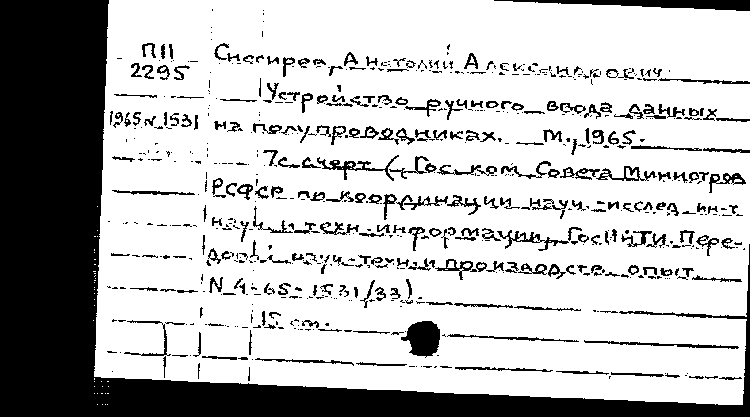 П11
2295
Снегирев, Анатолий Александрович.
Устройство ручного ввода данных
1965 № 1531
на полупроводниках. М., 1965.
7с. с черт. (Гос. ком. Совета Министров
РСФСР по координации науч.-исслед.
науч. и техн. информации, ГосИНТИ. Пере-
довой науч.-техн. и производств. опыт.
N 4-65-1531/33).
15 см.